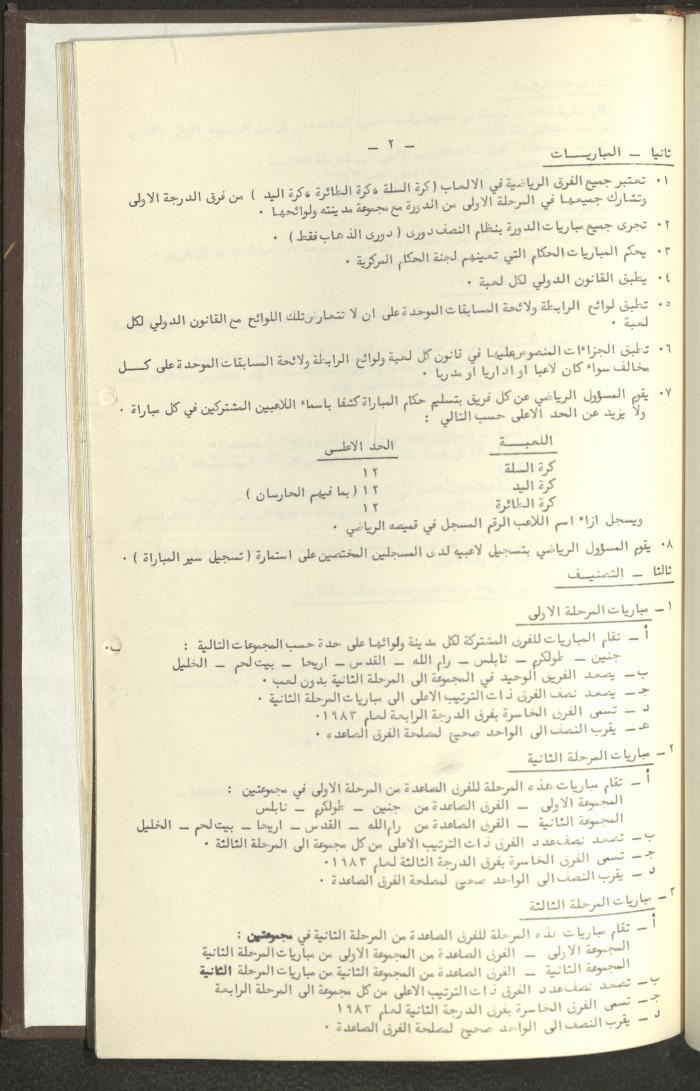 - ٢ -
ثانيا - المباريـــات
٠١ تعتبر جميع الفرق الرياضية في الالعاب ( كرة السلة ، كرة الطائرة ، كرة اليد ) من فرق الدرجة الاولى
وتشارك جميعها في المرحلة الاولى من الدورة مع مجموعة مدينته ولوائحها ٠
٠٢ تجرى جميع مباريات الدورة بنظام النصف دورى ( دورى الذهاب فقط ) ٠
٠٣ يحكم المباريات الحكام التي تعينهم لجنة الحكام المركزية ٠
٠٤ يطبق القانون الدولي لكل لعبة ٠
٠٥ تطبق لوائح الرابطة ولائحة المسابقات الموحدة على ان لا تتعارض تلك اللوائح مع القانون الدولي لكل
لعبة ٠
٠٦ تطبق الجزاءات المنصوص عليها في قانون كل لعبة ولوائح الرابطة ولائحة المسابقات الموحدة على كـــل
مخالف سواء كان لاعبا او اداريا او مدربا ٠
٠٧ يقوم المسؤول الرياضي عن كل فريق بتسليم حكام المباراة كشفا باسماء اللاعبين المشتركين في كل مباراة ٠
ولا يزيد عن الحد الاعلى حسب التالي :
اللعبـــة الحد الاعلـى
كرة السلة ١٢
كرة اليد ١٢ ( بما فيهم الحارسان )
كرة الطائرة ١٢
ويسجل ازاء اسم اللاعب الرقم المسجل في قميصه الرياضي ٠
٠٨ يقوم المسؤول الرياضي بتسجيل لاعبيه لدى المسجلين المختصين على استمارة ( تسجيل سير المباراة ) ٠
ثالثا - التصنيـف
١ - مباريات المرحلة الاولى
أ - تقام المباريات للفرق المشتركة لكل مدينة ولوائها على حدة حسب المجموعات التالية :
جنين - طولكرم - نابلس - رام الله - القدس - اريحا - بيت لحم - الخليل
ب - يصعد الفريق الوحيد في المجموعة الى المرحلة الثانية بدون لعب ٠
جـ - يصعد نصف الفرق ذات الترتيب الاعلى الى مباريات المرحلة الثانية ٠
د - تسمى الفرق الخاسرة بفرق الدرجة الرابعة لعام ١٩٨٣٠
هـ - يقرب النصف الى الواحد صحيح لمصلحة الفرق الصاعده ٠
٢ - مباريات المرحلة الثانية
أ - تقام مباريات هذه المرحلة للفرق الصاعدة من المرحلة الاولى في مجموعتين :
المجموعة الاولى - الفرق الصاعدة من جنين - طولكرم - نابلس
المجموعة الثانية - الفرق الصاعدة من رام الله - القدس - اريحا - بيت لحم - الخليل
ب - تصعد نصف عدد الفرق ذات الترتيب الاعلى من كل مجموعة الى المرحلة الثالثة ٠
جـ - تسمى الفرق الخاسرة بفرق الدرجة الثالثة لعام ١٩٨٣٠
د - يقرب النصف الى الواحد صحيح لمصلحة الفرق الصاعدة ٠
٣ - مباريات المرحلة الثالثة
أ - تقام مباريات هذه المرحلة للفرق الصاعدة من المرحلة الثانية في مجموعتين :
المجموعة الاولى - الفرق الصاعدة من المجموعة الاولى من مباريات المرحلة الثانية
المجموعة الثانية - الفرق الصاعدة من المجموعة الثانية من مباريات المرحلة الثانية
ب - تصعد نصف عدد الفرق ذات الترتيب الاعلى من كل مجموعة الى المرحلة الرابعة
جـ - تسمى الفرق الخاسرة بفرق الدرجة الثانية لعام ١٩٨٣
د - يقرب النصف الى الواحد صحيح لمصلحة الفرق الصاعدة ٠